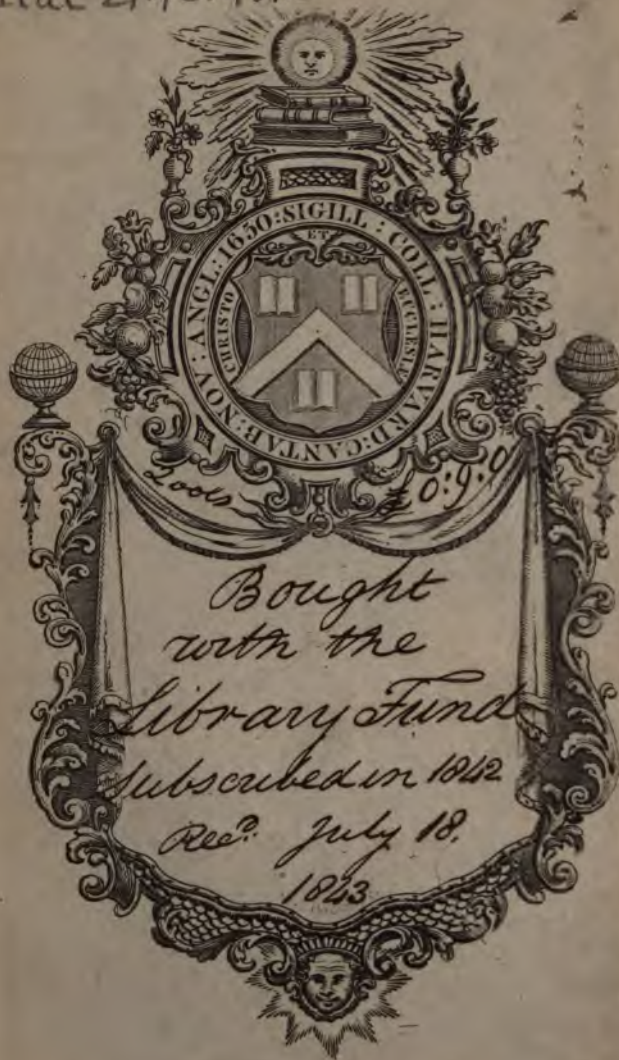 SIGILL : COLL : HARVARD : CANTAB : NOV : ANGL : 1650 :
ET
CHRISTO
ECCLESIÆ
2 vols
£ 0:9:0
Bought
with the
Library Fund
subscribed in 1842
Recd. July 18.
1843